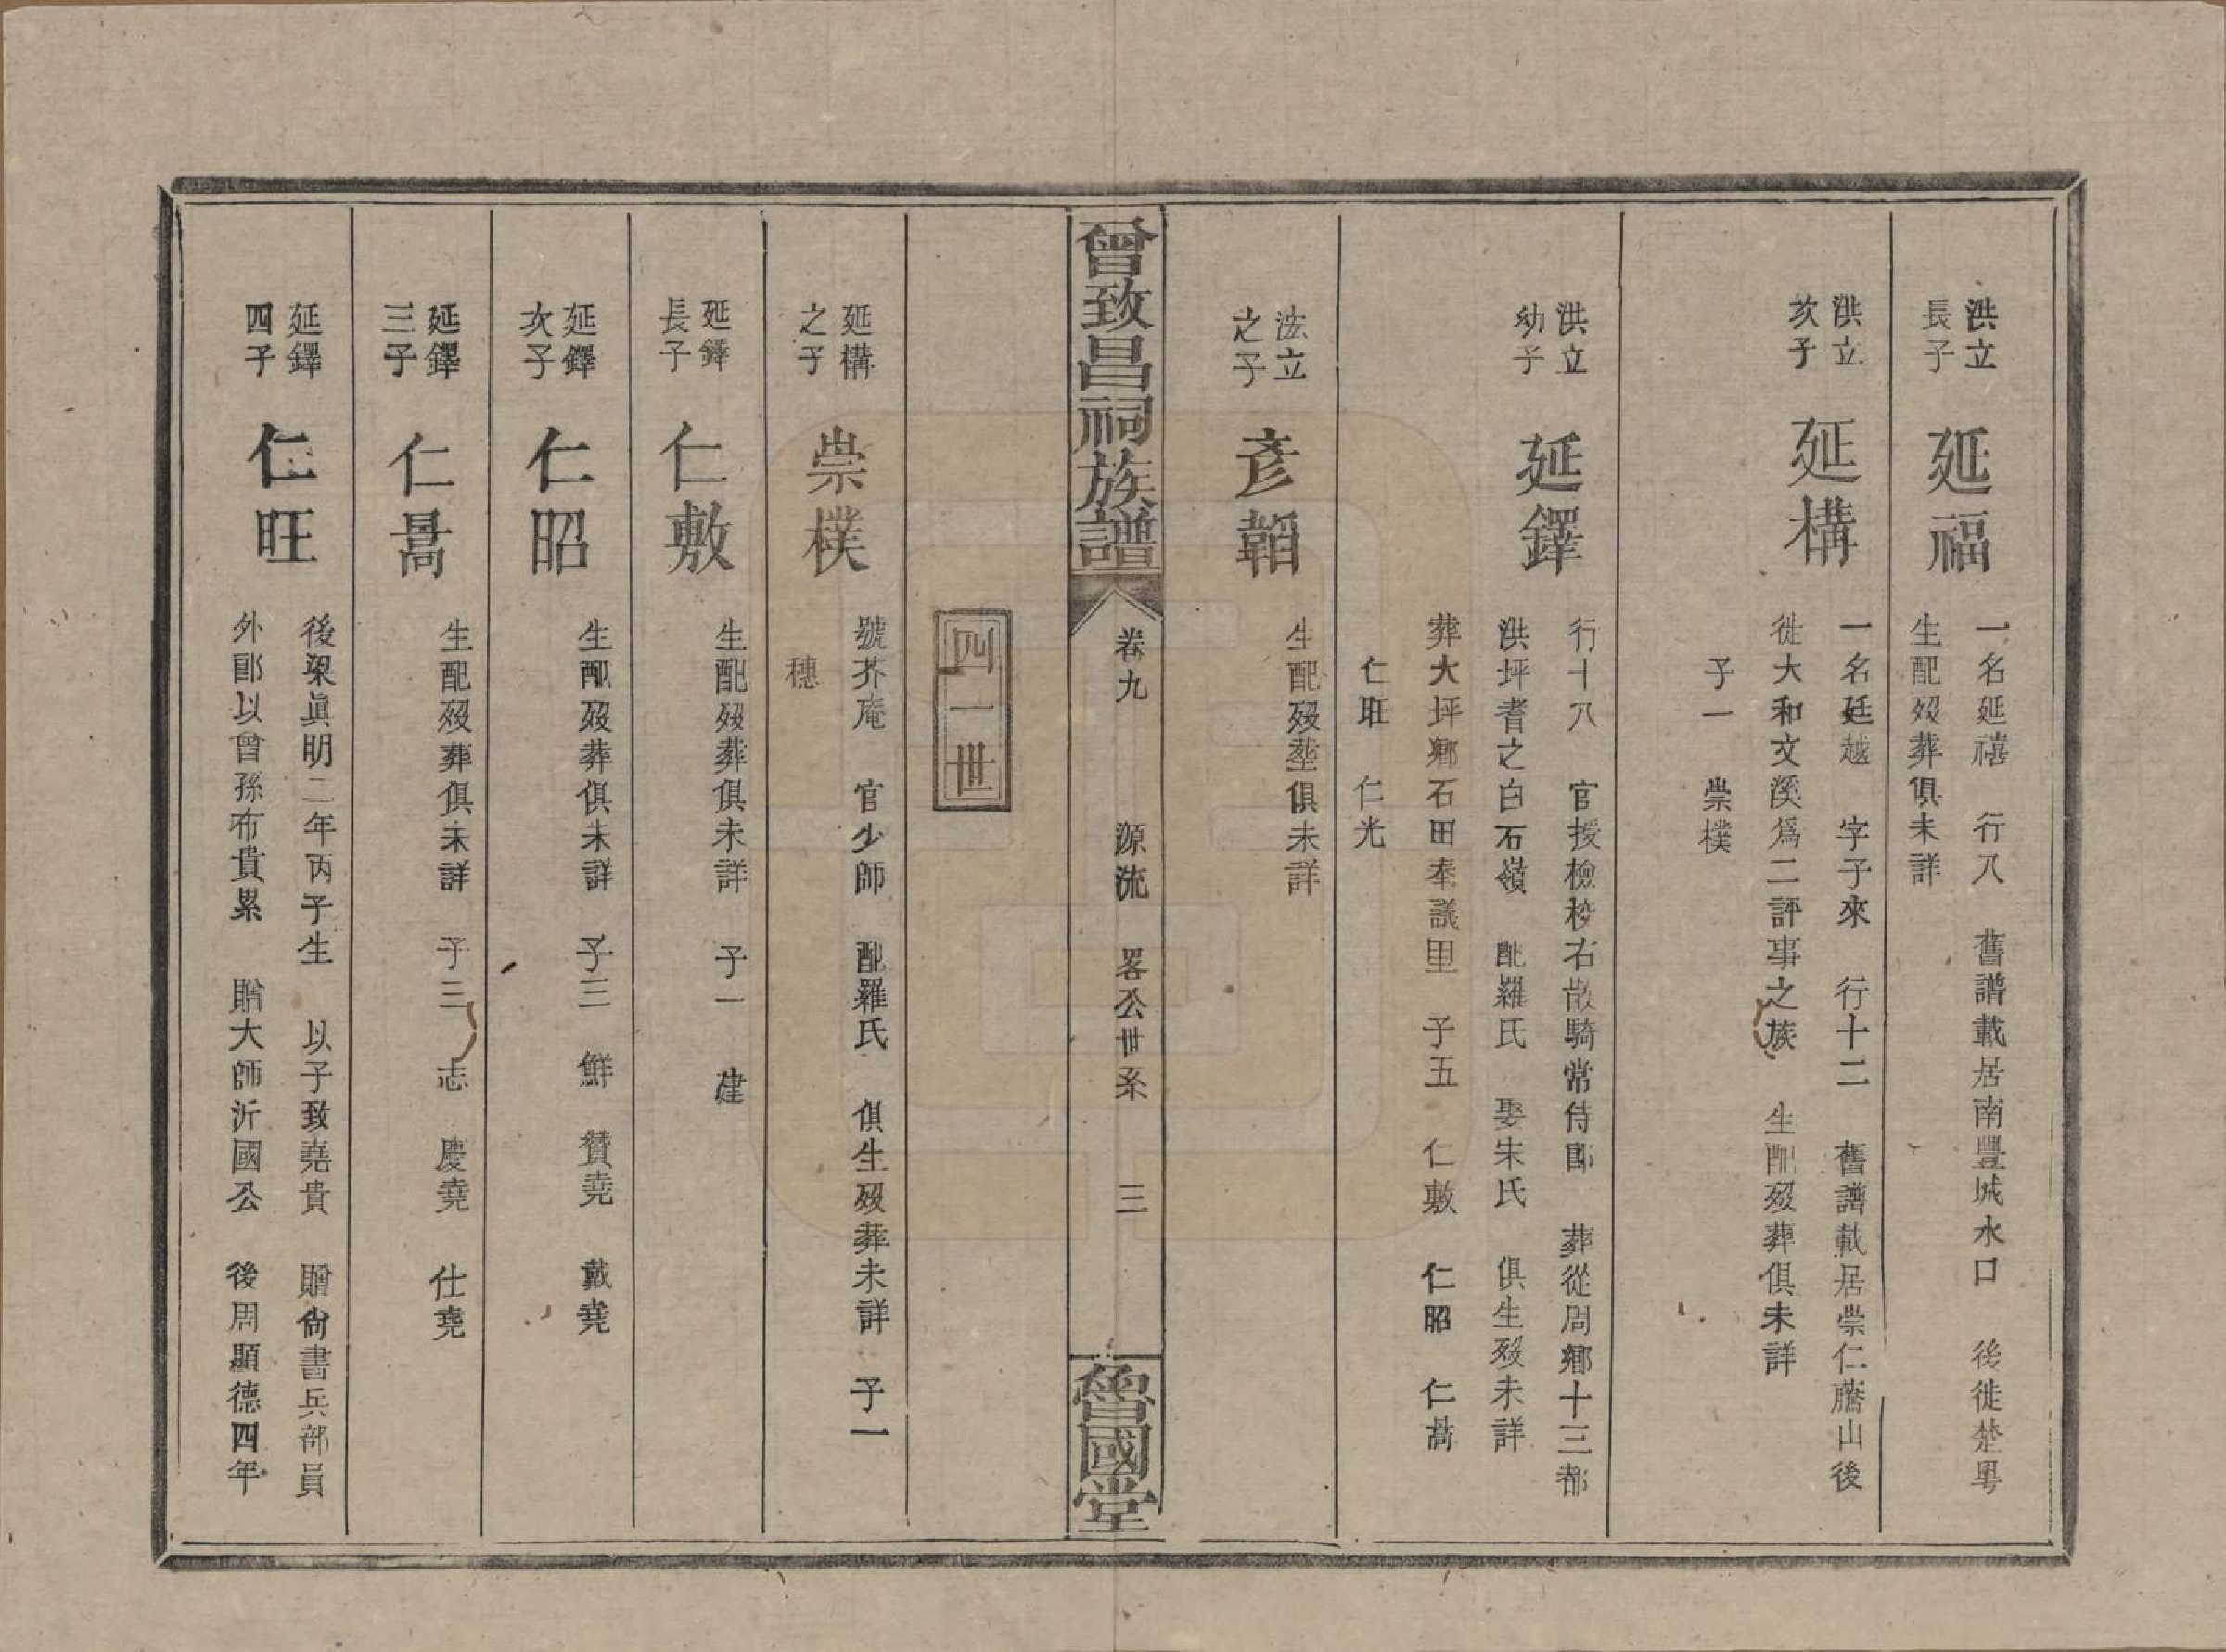 洪立
長子
延福
一名延禧　行八　舊譜載居南豐城水口　後徙楚粵
生配歿葬俱未詳
洪立
次子
延構
一名廷越　字子來　行十二　舊譜載居崇仁藤山後
徙大和文溪爲二評事之族　生配歿葬俱未詳
子一　崇樸
洪立
幼子
延鐸
行十八　官授檢校右散騎常侍郎　葬從周鄉十三都
洪坪耆之白石嶺　配羅氏　娶朱氏　俱生歿未詳
葬大坪鄉石田奉議里　子五　仁敷　仁昭　仁暠
仁旺　仁光
法立
之子
彥韜
生配歿塟俱未詳
曾致昌祠族譜
卷九　源流　畧公世系　三
魯國堂
四一世
延構
之子
崇樸
號芥庵　官少師　配羅氏　俱生歿葬未詳　子一
穗
延鐸
長子
仁敷
生配歿葬俱未詳　子一　建
延鐸
次子
仁昭
生配歿葬俱未詳　子三　鮮　贊堯　戴堯
延鐸
三子
仁暠
生配歿葬俱未詳　子三　志　慶堯　仕堯
延鐸
四子
仁旺
後梁眞明二年丙子生　以子致堯貴　贈尙書兵部員
外郎以曾孫布貴累　贈大師沂國公　後周顯德四年